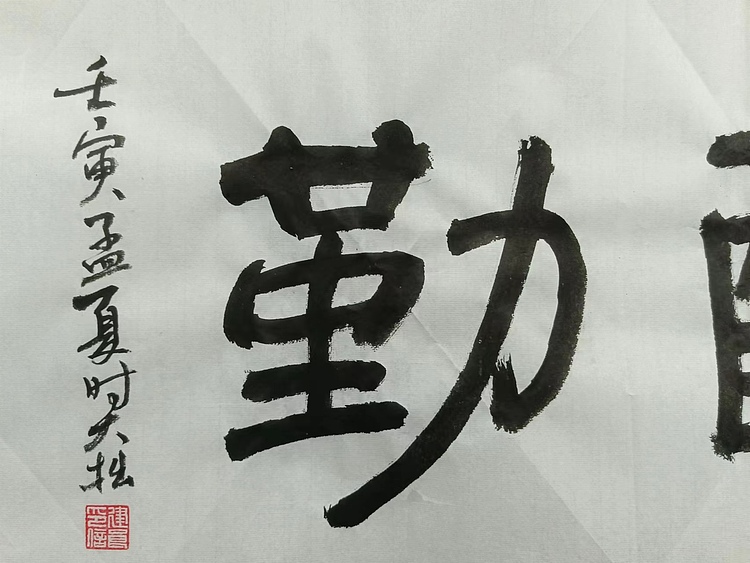 勤
壬寅孟夏时大拙